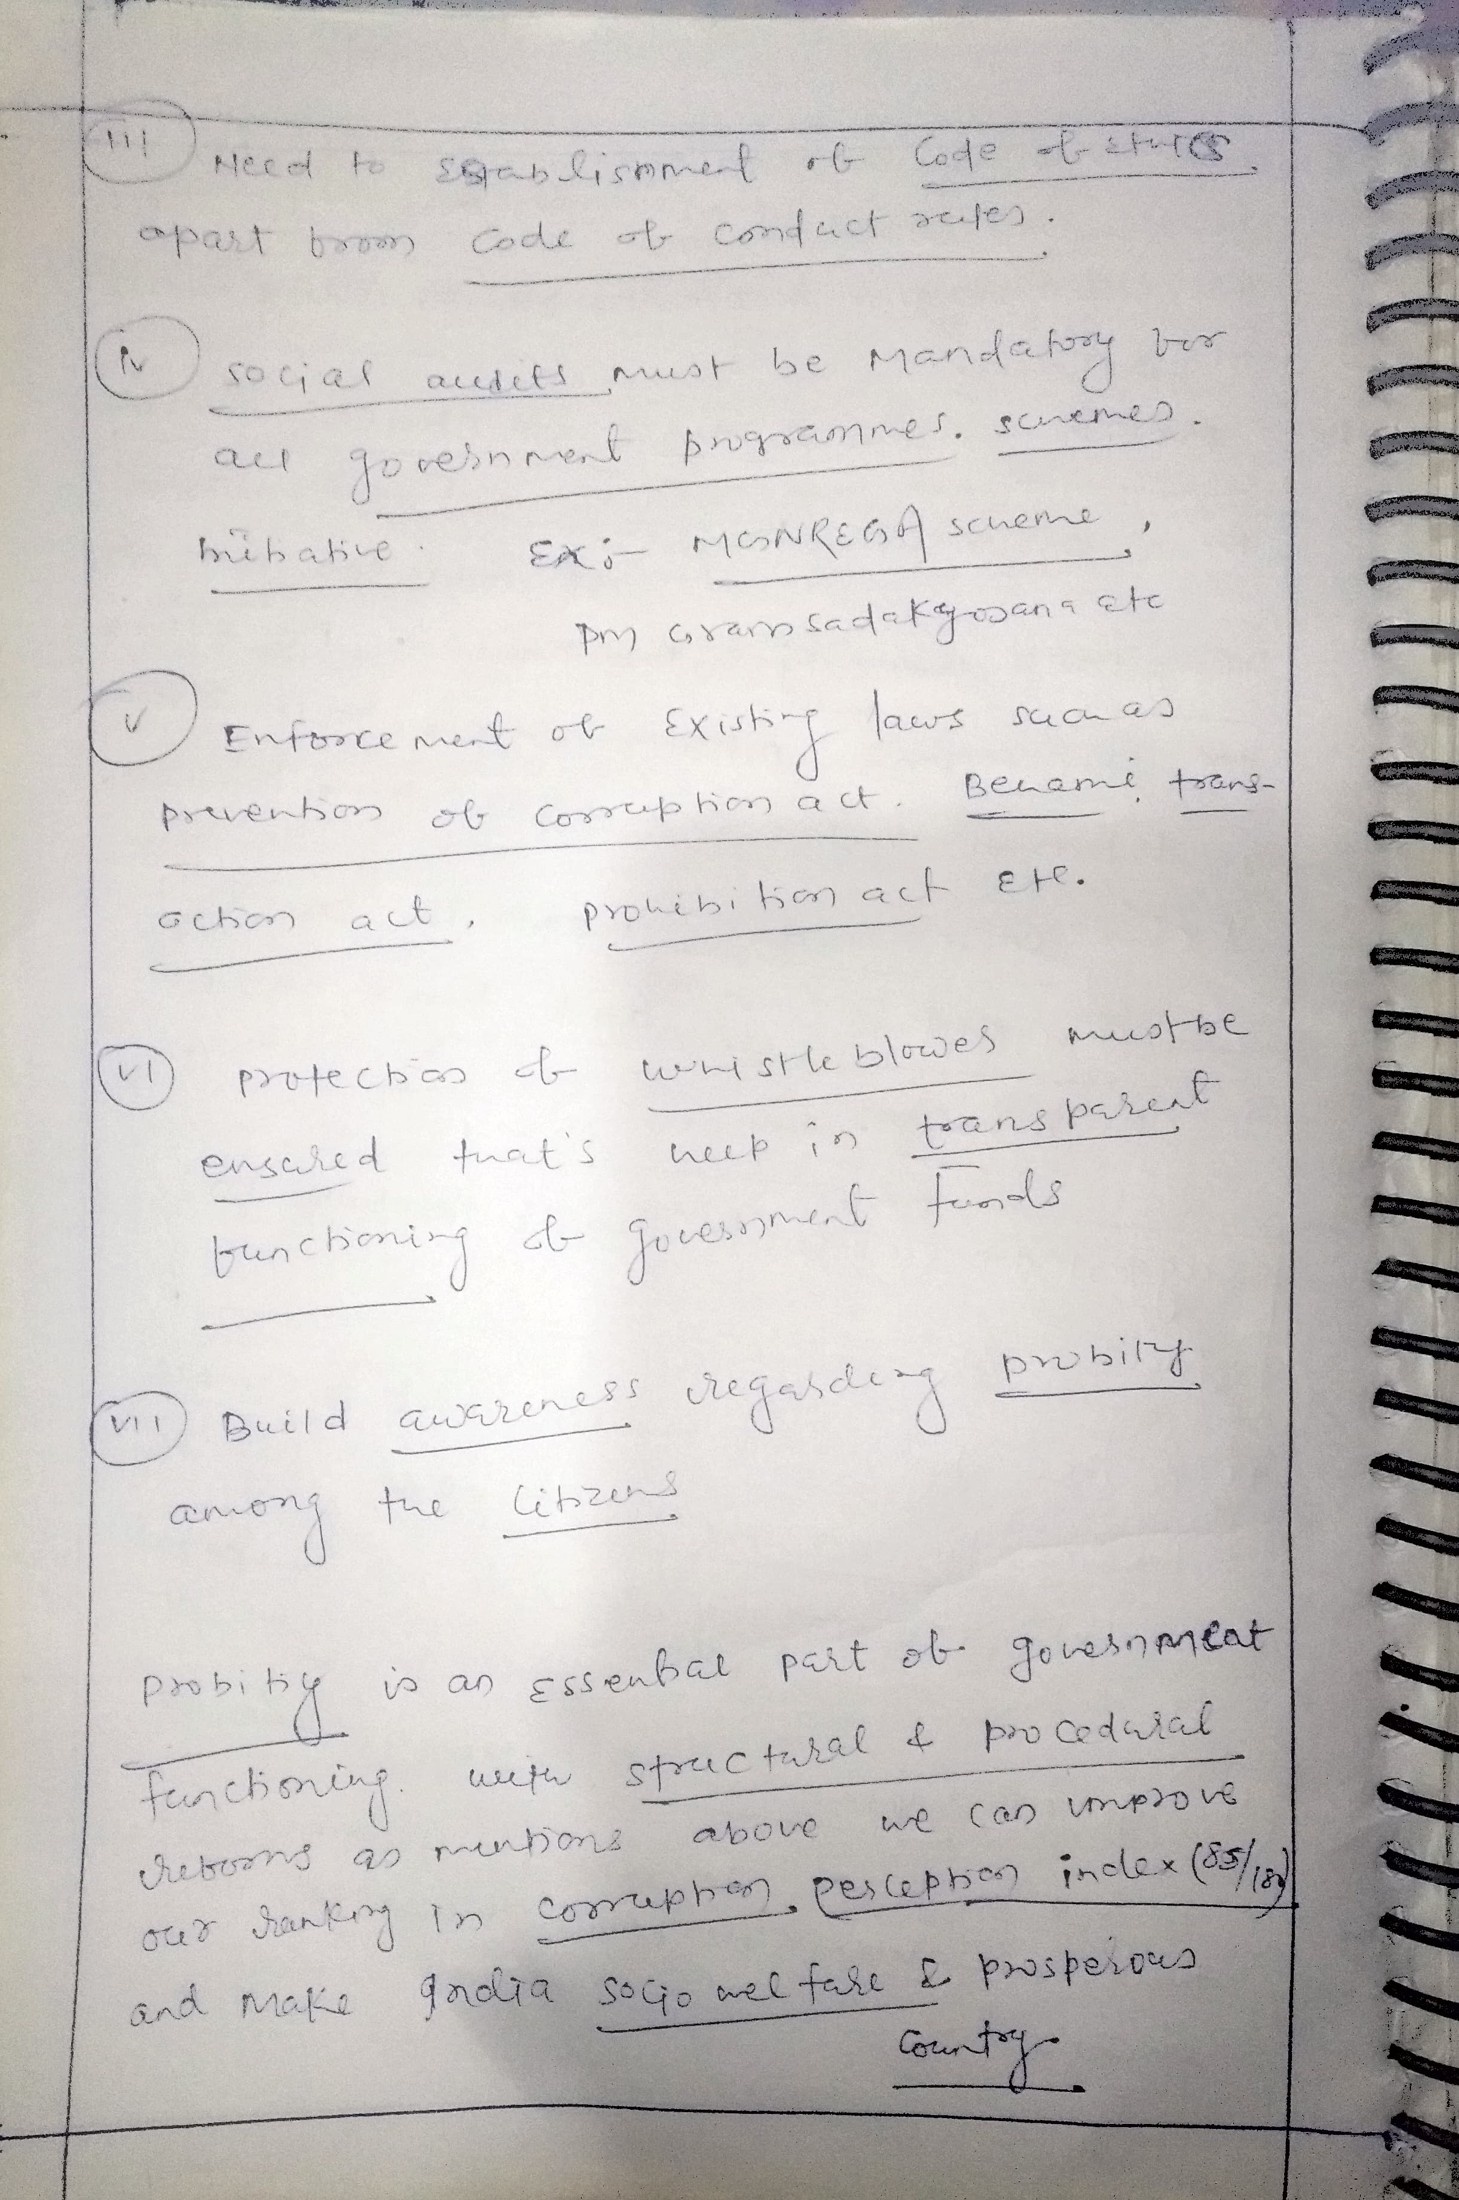 iii Need to Establishment of Code of ethics
apart from code of conduct rules.
iv social audits must be Mandatory for
all government programmes. schemes.
initiative. Ex:- MGNREGA scheme,
pm Gramsadakyojana etc
v Enforcement of Existing laws such as
prevention of corruption act. Benami trans-
action act, prohibition act Etc.
vi protection of whistle blowes must be
ensured that's help in transparent
functioning of government funds
vii Build awareness regarding probity
among the Citizens
probity is an Essential part of government
functioning. with structural & procedural
reforms as mentions above we can improve
our ranking in corruption perception index (85/180)
and make India socio welfare & prosperous
Country.